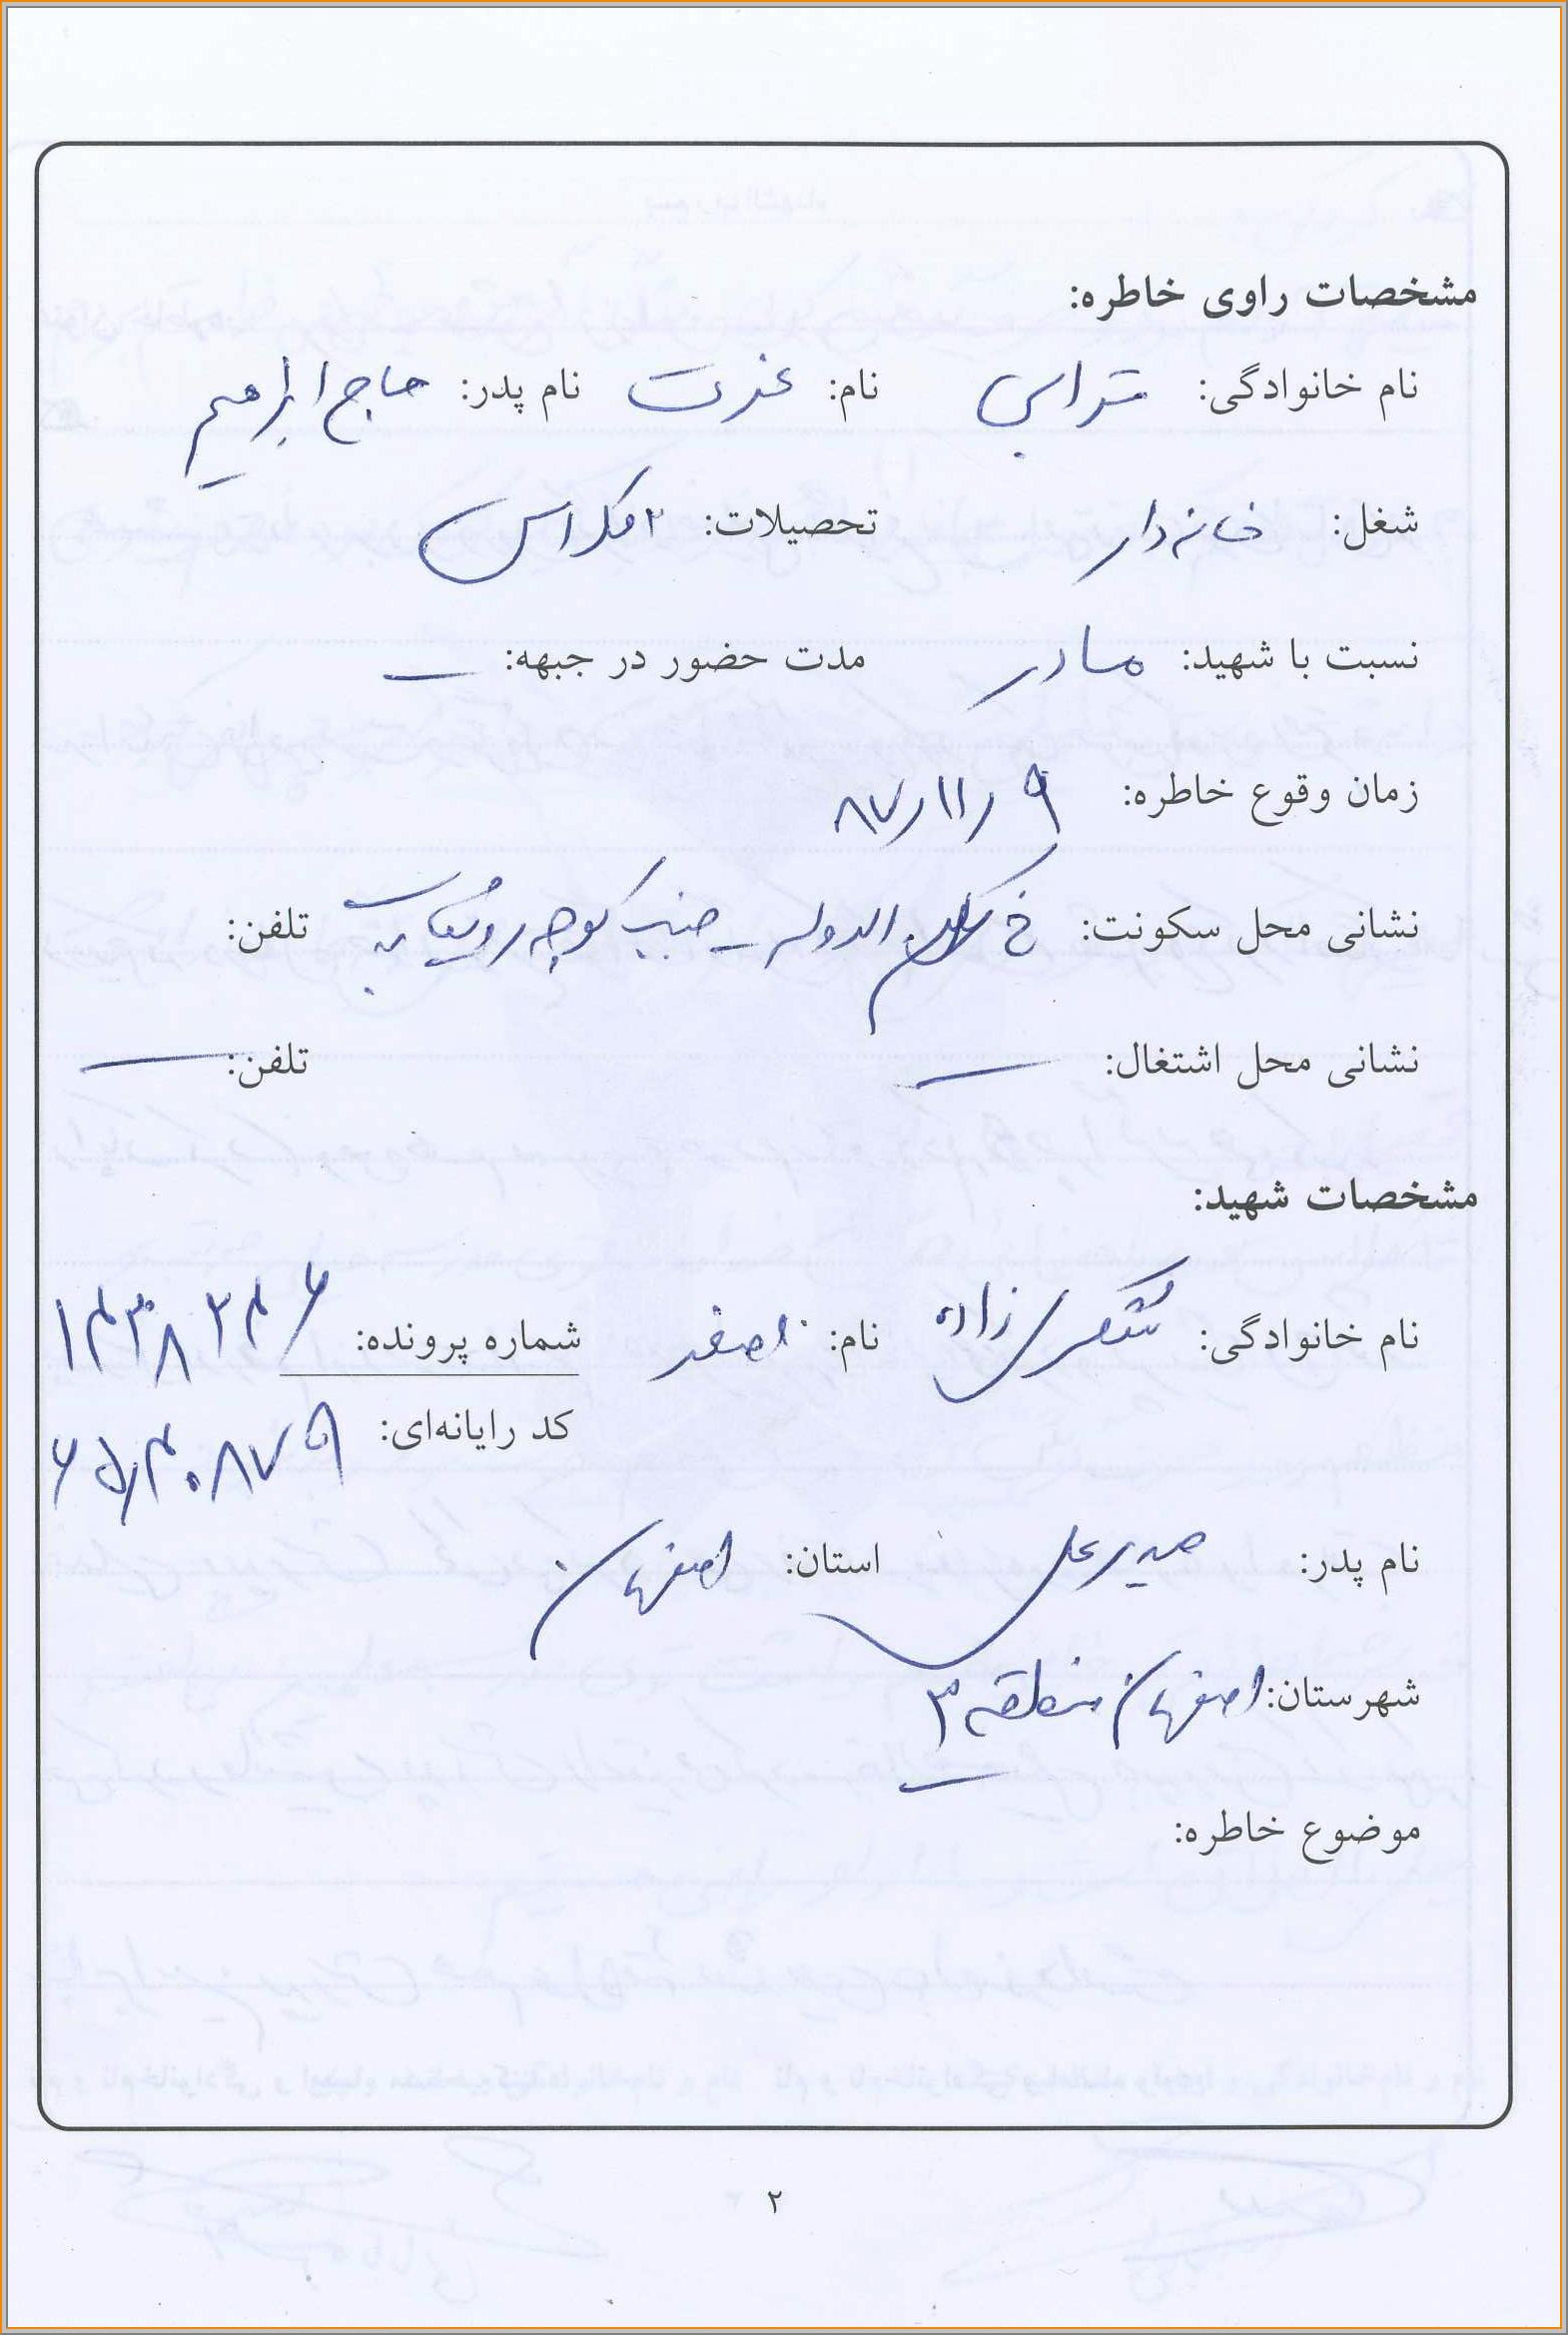 مشخصات راوی خاطره:
نام خانوادگی: ترابی نام: عزت نام پدر: حاج ابراهیم
شغل: خانه دار تحصیلات: ۲ کلاس
نسبت با شهید: مادر مدت حضور در جبهه: ـ
زمان وقوع خاطره: ۸۷/۱۱/۹
نشانی محل سکونت: خ الدوله ـ جنب کوچه تلفن:
نشانی محل اشتغال: ـ تلفن: ـ
مشخصات شهید:
نام خانوادگی: زاده نام: اصغر شماره پرونده: ۱۴۳۸۲۴۶
کد رایانه‌ای: ۶۵۴۰۸۷۹
نام پدر: حیدرعلی استان: اصفهان
شهرستان: اصفهان منطقه ۳
موضوع خاطره:
۲